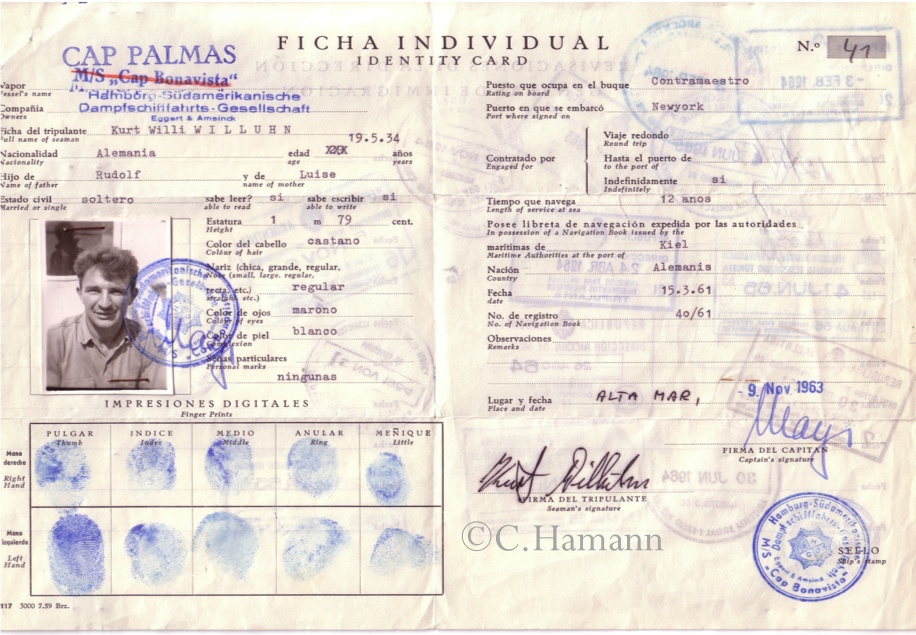 CAP PALMAS
M/S „Cap Bonavista“
Hamburg-Südamerikanische
Dampfschifffahrts-Gesellschaft
Eggert & Amsinck
FICHA INDIVIDUAL
IDENTITY CARD
N.º 41
Vapor
Vessel's name
Compañia
Owners
Ficha del tripulante Kurt Willi WILLUHN
Full name of seaman
19.5.34
Nacionalidad Alemania edad XXX años
Nacionality age years
Hijo de Rudolf y de Luise
Name of father name of mother
Estado civil soltero sabe leer? si sabe escribir si
Married or single able to read able to write
Estatura 1 m 79 cent.
Height
Color del cabello castano
Colour of hair
Nariz (chica, grande, regular,
Nose (small, large, regular,
recta, etc.) regular
straight, etc.)
Color de ojos marono
Colour of eyes
Color de piel blanco
Complexion
Señas particulares
Personal marks
ningunas
IMPRESIONES DIGITALES
Finger Prints
PULGAR INDICE MEDIO ANULAR MEÑIQUE
Thumb Index Middle Ring Little
Mano
derecha
Right
Hand
Mano
izquierda
Left
Hand
117 3000 7.59 Brz.
Puesto que ocupa en el buque Contramaestro
Rating on board
Puerto en que se embarcó Newyork
Port where signed on
Contratado por
Engaged for
Viaje redondo
Round trip
Hasta el puerto de
to the port of
Indefinidamente si
Indefinitely
Tiempo que navega 12 anos
Length of service at sea
Posee libreta de navegación expedida por las autoridades
In possession of a Navigation Book issued by the
marítimas de Kiel
Maritime Authorities at the port of
Nación Alemanis
Country
Fecha 15.3.61
date
No. de registro 4o/61
No. of Navigation Book
Observaciones
Remarks
Lugar y fecha ALTA MAR, - 9. Nov 1963
Place and date
May
FIRMA DEL CAPITAN
Captain's signature
Kurt Willuhn
FIRMA DEL TRIPULANTE
Seaman's signature
©C.Hamann
Hamburg-Südamerikanische
Dampfschifffahrts-Gesellschaft
Eggert & Amsinck
M/S „Cap Bonavista“
SELLO
Ship's stamp